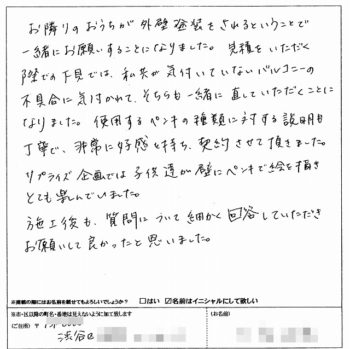 お隣りのおうちが外壁塗装をされるということで
一緒にお願いすることになりました。見積をいただく
際での下見では、私共が気付いていないバルコニーの
不具合に気付かれて、そちらも一緒に直していただくことに
なりました。使用するペンキの種類に対する説明も
丁寧で、非常に好感を持ち、契約させて頂きました。
サプライズ企画では子供達が壁にペンキで絵を描き
とても楽しんでいました。
施工後も、質問について細かく回答していただき
お願いして良かったと思いました。
※掲載の際にはお名前を載せてもよろしいでしょうか? □はい ☑名前はイニシャルにして欲しい
※市・区以降の町名・番地は見えないように加工致します
(ご住所) 〒
(お名前)
渋谷区